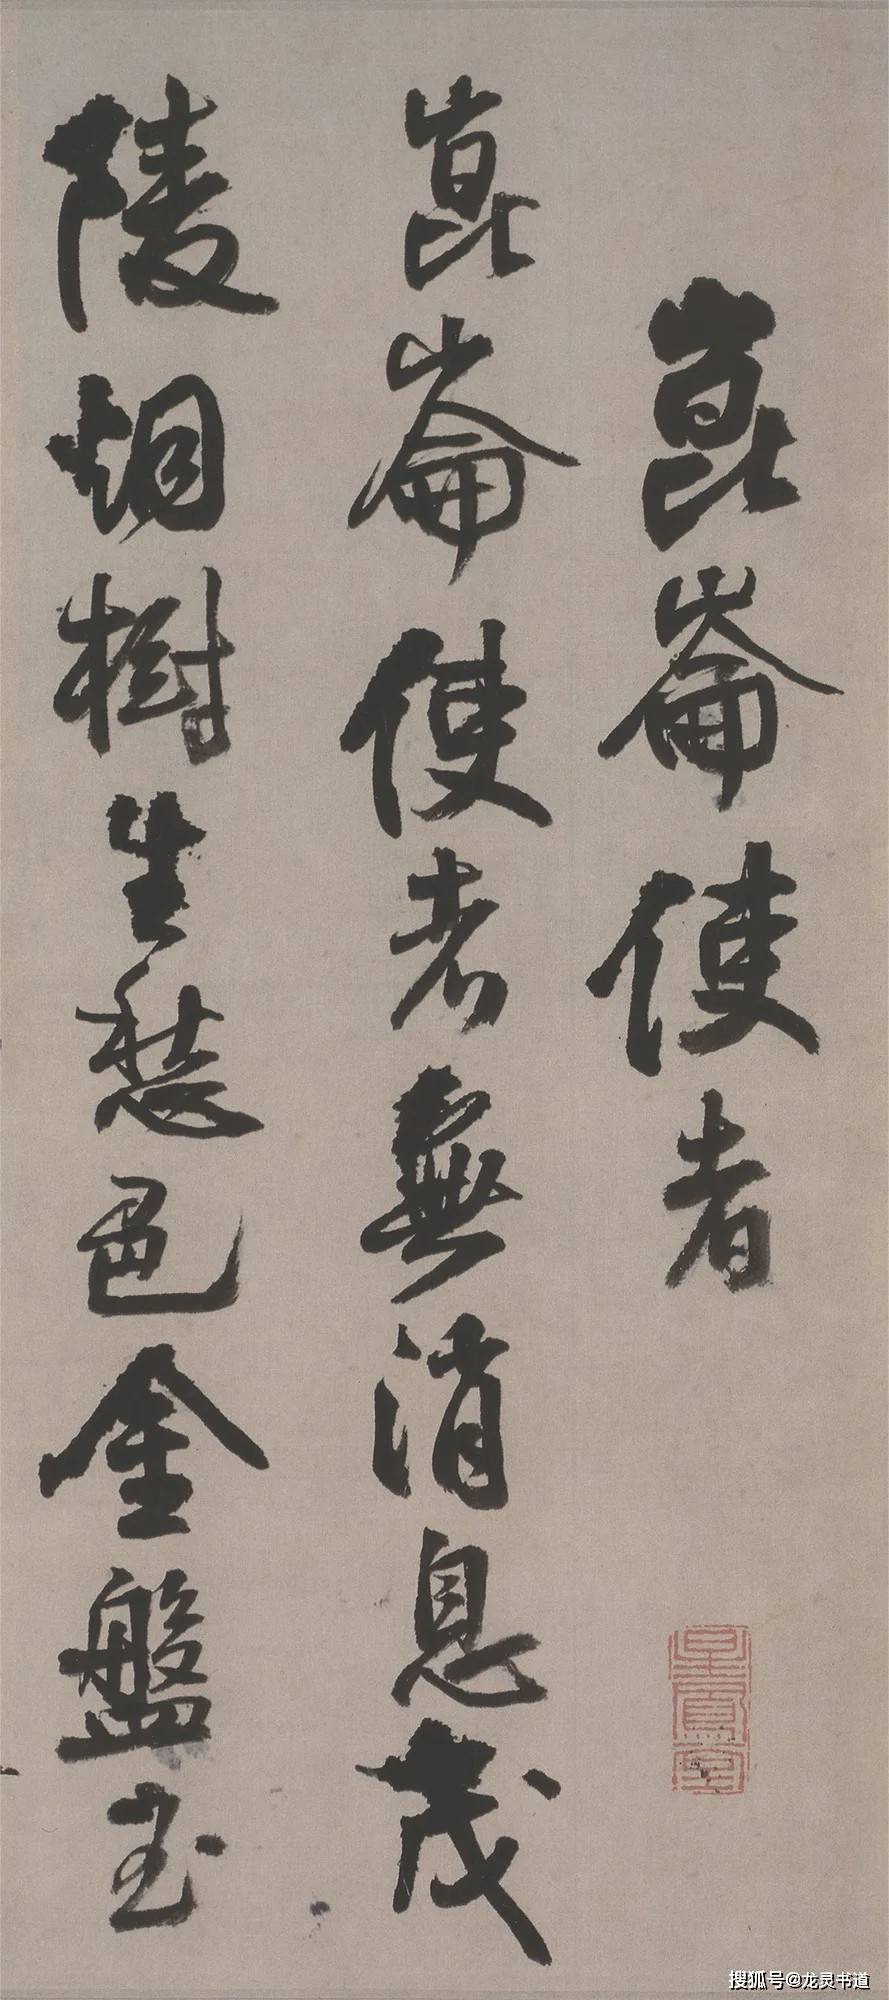 崑崙使者
崑崙使者無消息茂
陵烟樹生愁色金盤玉
搜狐号@龙灵书道